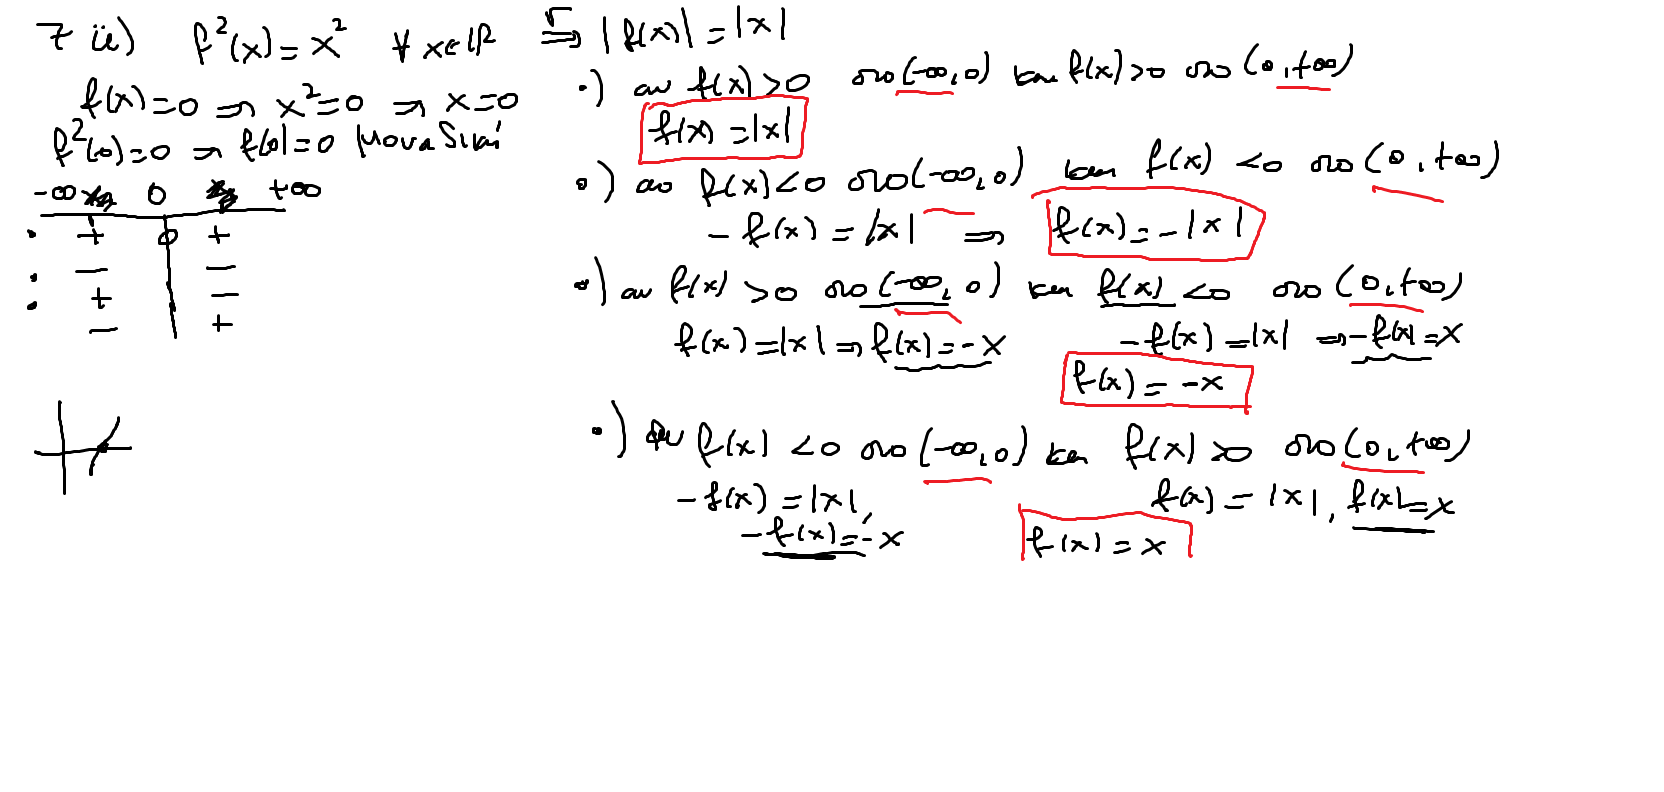 7 iii) f²(x) = x² ∀ x∈ℝ ⇒ |f(x)| = |x|
f(x)=0 ⇒ x²=0 ⇒ x=0
f²(0)=0 ⇒ f(0)=0 μοναδική
-∞ 0 +∞
+ 0 +
— —
+ —
— +
•) αν f(x)>0 στο (-∞,0) και f(x)>0 στο (0,+∞)
f(x) = |x|
•) αν f(x)<0 στο (-∞,0) και f(x) <0 στο (0,+∞)
- f(x) = |x| ⇒ f(x) = -|x|
•) αν f(x) >0 στο (-∞,0) και f(x) <0 στο (0,+∞)
f(x) = |x| ⇒ f(x) = -x -f(x) = |x| ⇒ -f(x) = x
f(x) = -x
•) αν f(x) <0 στο (-∞,0) και f(x) >0 στο (0,+∞)
-f(x) = |x|, f(x) = |x|, f(x) = x
-f(x) = -x f(x) = x